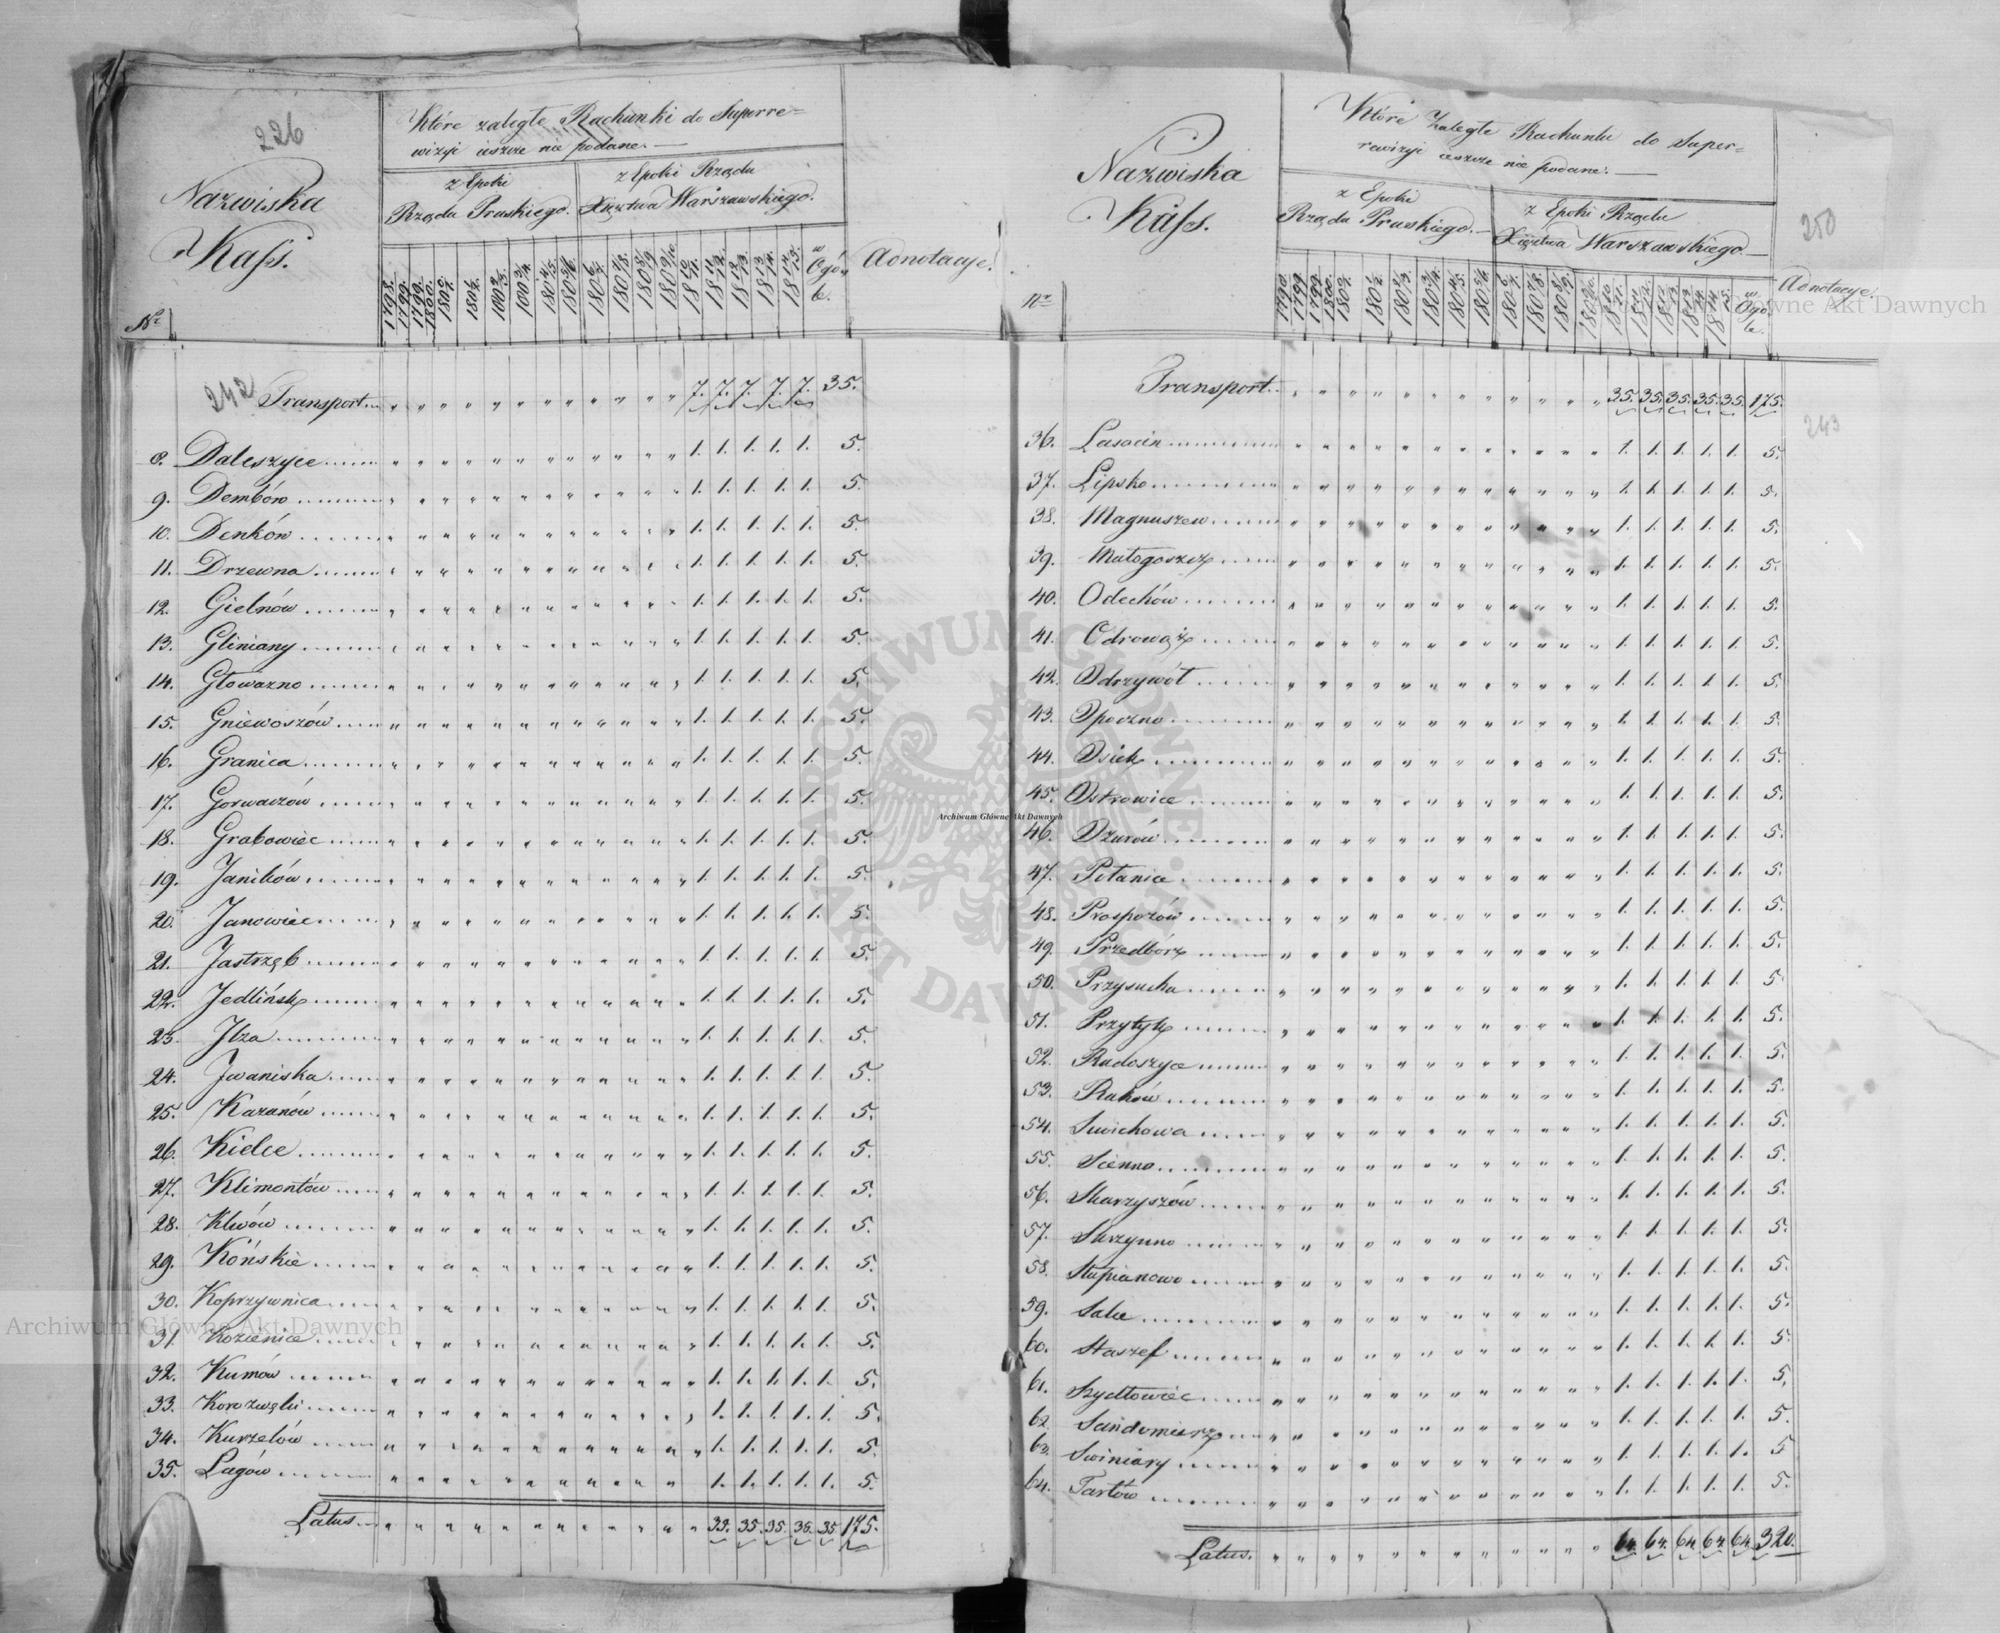 226
Nazwiska
Kass.
Nr
Które zaległe Rachunki do Superre=
wizyi ieszcze nie podane.
z Epoki
Rządu Pruskiego.
z Epoki Rządu
Xięztwa Warszawskiego.
w Ogó-
le.
Adnotacye.
242 Transport... 7. 7. 7. 7. 7. 35.
8. Daleszyce 1. 1. 1. 1. 1. 5.
9. Dembów 1. 1. 1. 1. 1. 5.
10. Denków 1. 1. 1. 1. 1. 5.
11. Drzewna 1. 1. 1. 1. 1. 5.
12. Gielnów 1. 1. 1. 1. 1. 5.
13. Gliniany 1. 1. 1. 1. 1. 5.
14. Głowazno 1. 1. 1. 1. 1. 5.
15. Gniewoszów 1. 1. 1. 1. 1. 5.
16. Granica 1. 1. 1. 1. 1. 5.
17. Gorwaczów 1. 1. 1. 1. 1. 5.
18. Grabowiec 1. 1. 1. 1. 1. 5.
19. Janików 1. 1. 1. 1. 1. 5.
20. Janowiec 1. 1. 1. 1. 1. 5.
21. Jastrząb 1. 1. 1. 1. 1. 5.
22. Jedlińsk 1. 1. 1. 1. 1. 5.
23. Jlza 1. 1. 1. 1. 1. 5.
24. Jwaniska 1. 1. 1. 1. 1. 5.
25. Kazanów 1. 1. 1. 1. 1. 5.
26. Kielce 1. 1. 1. 1. 1. 5.
27. Klimontów 1. 1. 1. 1. 1. 5.
28. Klwów 1. 1. 1. 1. 1. 5.
29. Końskie 1. 1. 1. 1. 1. 5.
30. Koprzywnica 1. 1. 1. 1. 1. 5.
31. Kozienice 1. 1. 1. 1. 1. 5.
32. Kumów 1. 1. 1. 1. 1. 5.
33. 1. 1. 1. 1. 1. 5.
34. Kurzelów 1. 1. 1. 1. 1. 5.
35. Lagów 1. 1. 1. 1. 1. 5.
Latus 35. 35. 35. 35. 35. 175.
Nazwiska
Kass.
Nr
Które Zaległe Rachunki do Super=
rewizyi ieszcze nie podane.
z Epoki
Rządu Pruskiego.
z Epoki Rządu
Xięztwa Warszawskiego
w Ogó-
le.
250
Adnotacye.
Transport. 35. 35. 35. 35. 35. 175.
243
36. Lasocin 1. 1. 1. 1. 1. 5.
37. Lipsko 1. 1. 1. 1. 1. 5.
38. Magnuszew 1. 1. 1. 1. 1. 5.
39. Małogoszcz 1. 1. 1. 1. 1. 5.
40. Odechów 1. 1. 1. 1. 1. 5.
41. Odrowąż 1. 1. 1. 1. 1. 5.
42. Odrzywół 1. 1. 1. 1. 1. 5.
43. Opoczno 1. 1. 1. 1. 1. 5.
44. Osiek 1. 1. 1. 1. 1. 5.
45. Ostrowice 1. 1. 1. 1. 1. 5.
46. Ożarów 1. 1. 1. 1. 1. 5.
47. Połanice 1. 1. 1. 1. 1. 5.
48. Proszoów 1. 1. 1. 1. 1. 5.
49. Przedbórz 1. 1. 1. 1. 1. 5.
50. Przysucha 1. 1. 1. 1. 1. 5.
51. Przytyk 1. 1. 1. 1. 1. 5.
52. Radoszyce 1. 1. 1. 1. 1. 5.
53. Raków 1. 1. 1. 1. 1. 5.
54. Suwichowa 1. 1. 1. 1. 1. 5.
55. Scienno 1. 1. 1. 1. 1. 5.
56. Skarzyszów 1. 1. 1. 1. 1. 5.
57. Skrzynno 1. 1. 1. 1. 1. 5.
58. Słupianowo 1. 1. 1. 1. 1. 5.
59. 1. 1. 1. 1. 1. 5.
60. Staszef 1. 1. 1. 1. 1. 5.
61. Szydłowiec 1. 1. 1. 1. 1. 5.
62. Sandomierz 1. 1. 1. 1. 1. 5.
63. Swiniary 1. 1. 1. 1. 1. 5.
64. Tarłów 1. 1. 1. 1. 1. 5.
Latus. 64. 64. 64. 64. 64. 320.
Archiwum Główne Akt Dawnych
ARCHIWUM GŁÓWNE AKT DAWNYCH